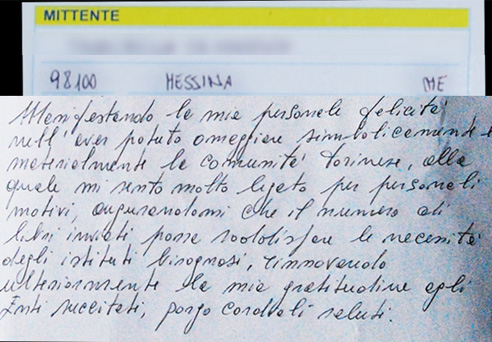 MITTENTE
98100 MESSINA ME
Manifestando la mia personale felicità
nell'aver potuto omaggiare simbolicamente e
materialmente la comunità torinese, alla
quale mi sento molto legato per personali
motivi, augurandomi che il numero di
libri inviati possa soddisfare le necessità
degli istituti bisognosi, rinnovando
ulteriormente la mia gratitudine agli
Enti succitati, porgo cordiali saluti.